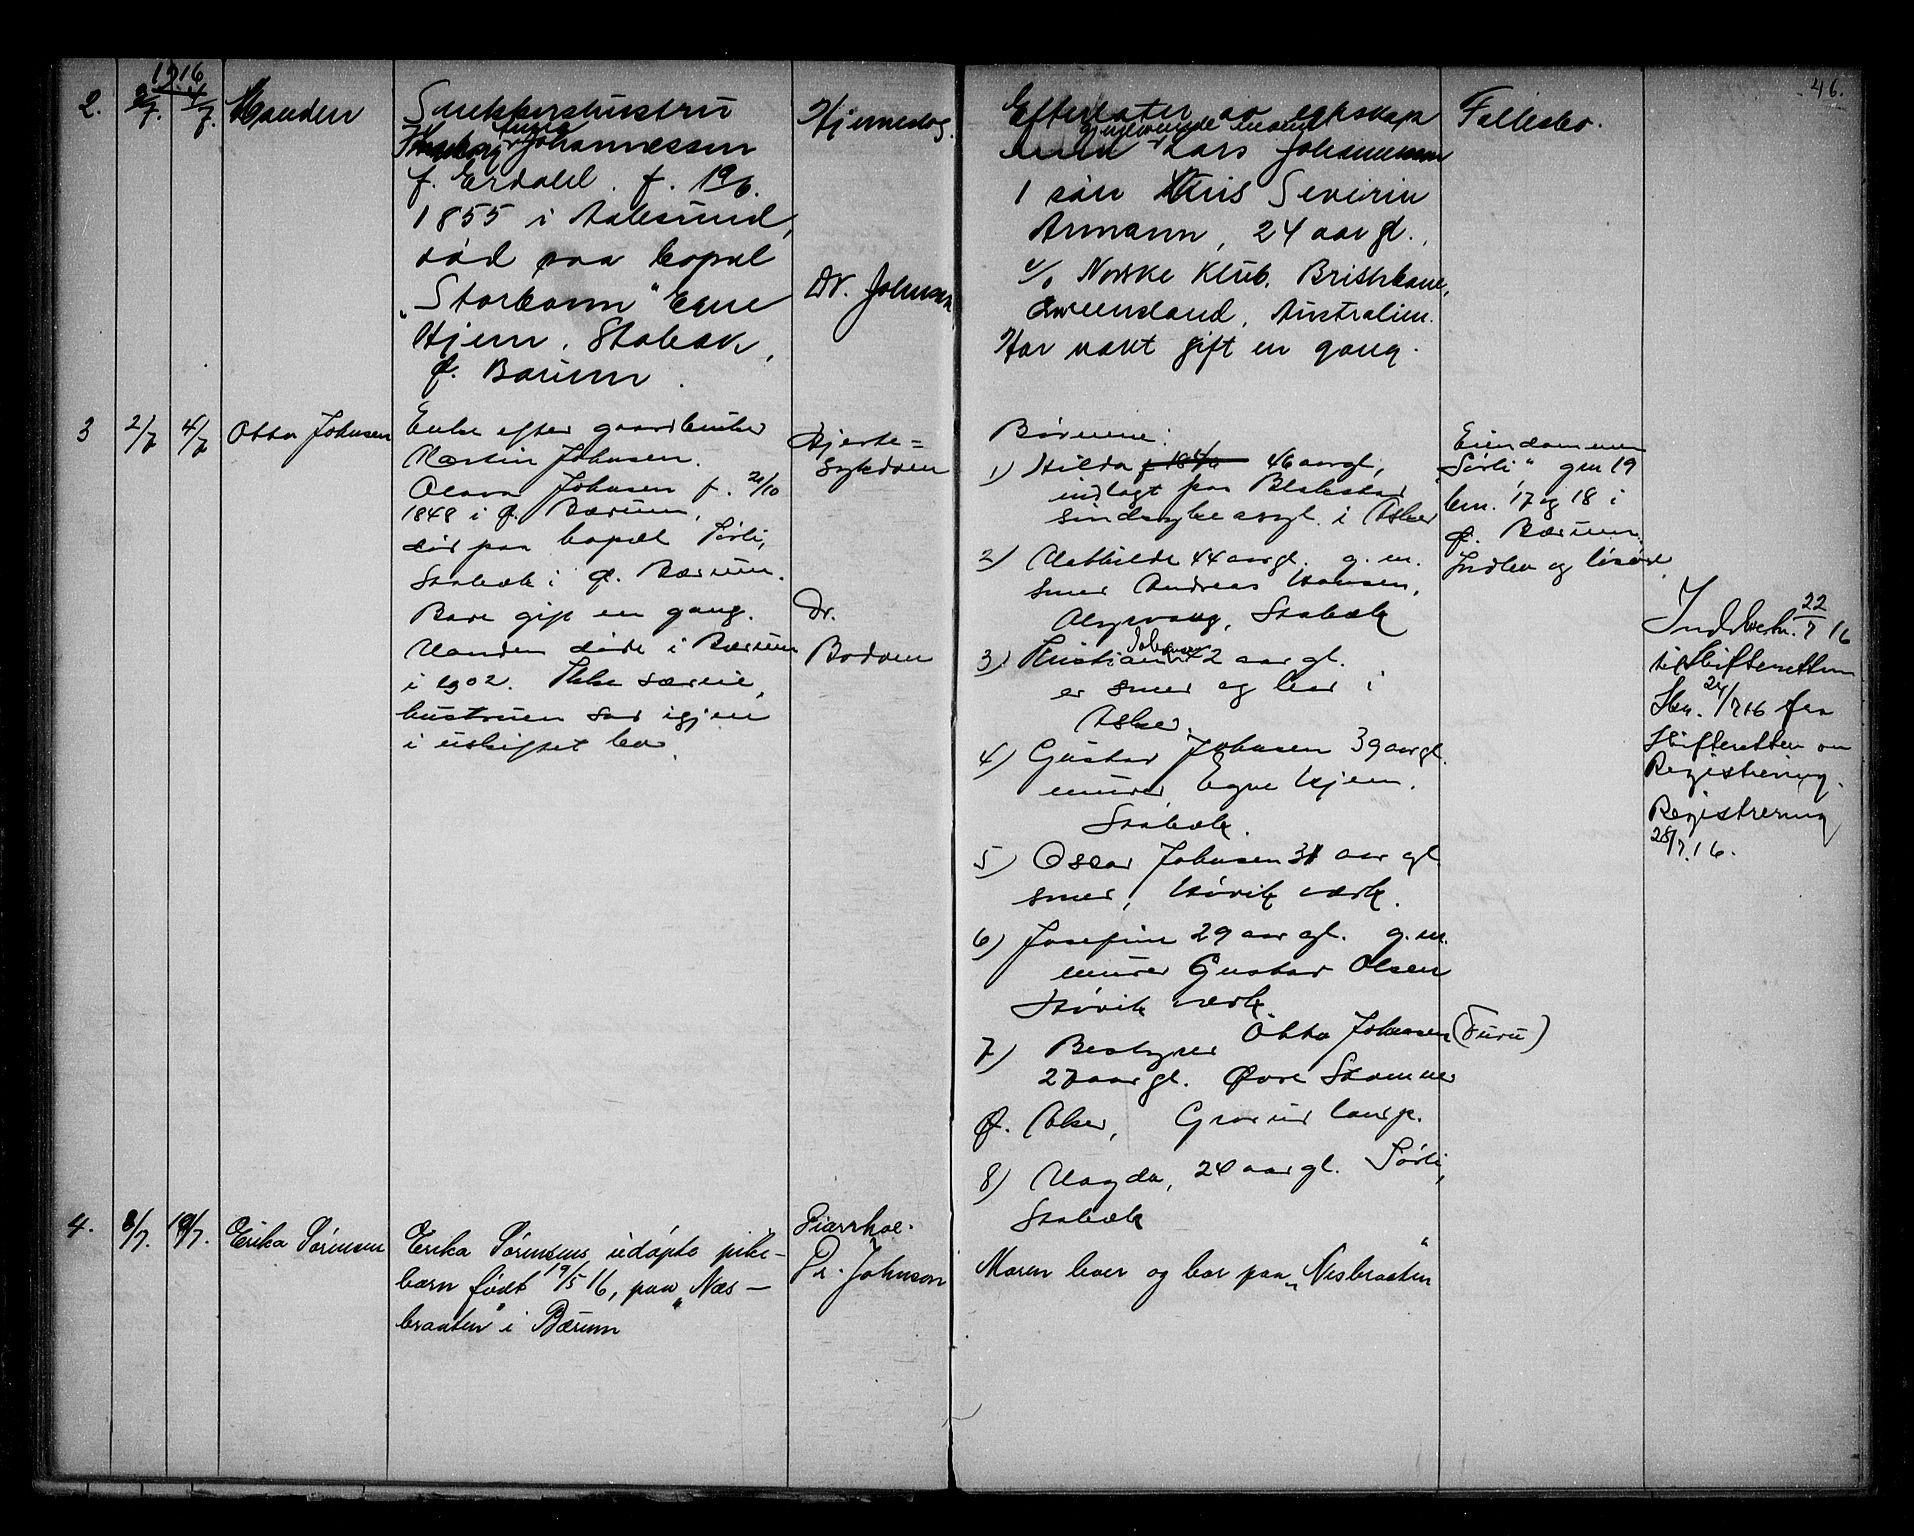 46.
1916
2. 2/7. 4/7. Manden
Snekkershustru
Inga
Johannessen
f. Erdahl. f. 19/6.
1855 i Aalesund,
död paa bopæl
"Storbaann" Egne
Hjem, Stabæk,
Ø. Bærum.
Hjerneslag.
Dr. Johnson
Efterlater av egteskap
med gjenlevende mand Lars Johannessen
1 sön Kris Severin
Armann, 24 aar gl.,
c/o Norske Klub. Brishbane,
Queensland, Australien.
Har vært gift en gang.
Fællesbo.
3 2/7 4/7 Otto Johnsen
Enke efter gaardbruker
Martin Johnsen.
Olava Johnsen f. 21/10
1848 i Ø. Bærum,
död paa bopæl Sørli,
Stabæk i Ø. Bærum.
Bare gift en gang.
Manden døde i Bærum
i 1902. Ikke særeie,
hustruen sad igjen
i uskiftet bo.
Hjerte=
sykdom
Dr.
Bødom
Børnene:
1) Hilda f 1870 46 aar gl,
indlagt paa Blakstad
sindssyke asyl. i Asker
2) Mathilde 44 aar gl. g. m.
smed Andreas Hansen,
Stabæk
3) Kristian Johnsen 42 aar gl.
er smed og bor i
Asker.
4) Gustav Johnsen 39 aar gl.
murer, Egne Hjem.
Stabæk.
5) Oscar Johnsen 31 aar gl
smed, Høvik værk.
6) Josefine 29 aar gl. g. m.
murer Gustav Olsen
Høvik værk.
7) Bestyrer Otto Johnsen (Furu)
27 aar gl. Øvre Stovner
Ø. Aker, Grorud landp.
8) Magda, 24 aar gl. Sørli,
Stabæk
Eiendommen
"Sørli" gnr 19
bnr. 17 og 18 i
Ø. Bærum.
Indbo og løsøre.
Indber. 22/7 16
til Skifteretten
Skr. 24/7 16 fra
Skifteretten om
Registrering.
Registrering
28/7.16.
4. 8/7. 19/7. Erika Sørensen
Erika Sørensens udøpte pike-
barn født 19/5 16, paa "Næs-
braaten" i Bærum
Diarrhoe.
Dr. Johnson
Moren lever og bor paa "Nesbraaten"